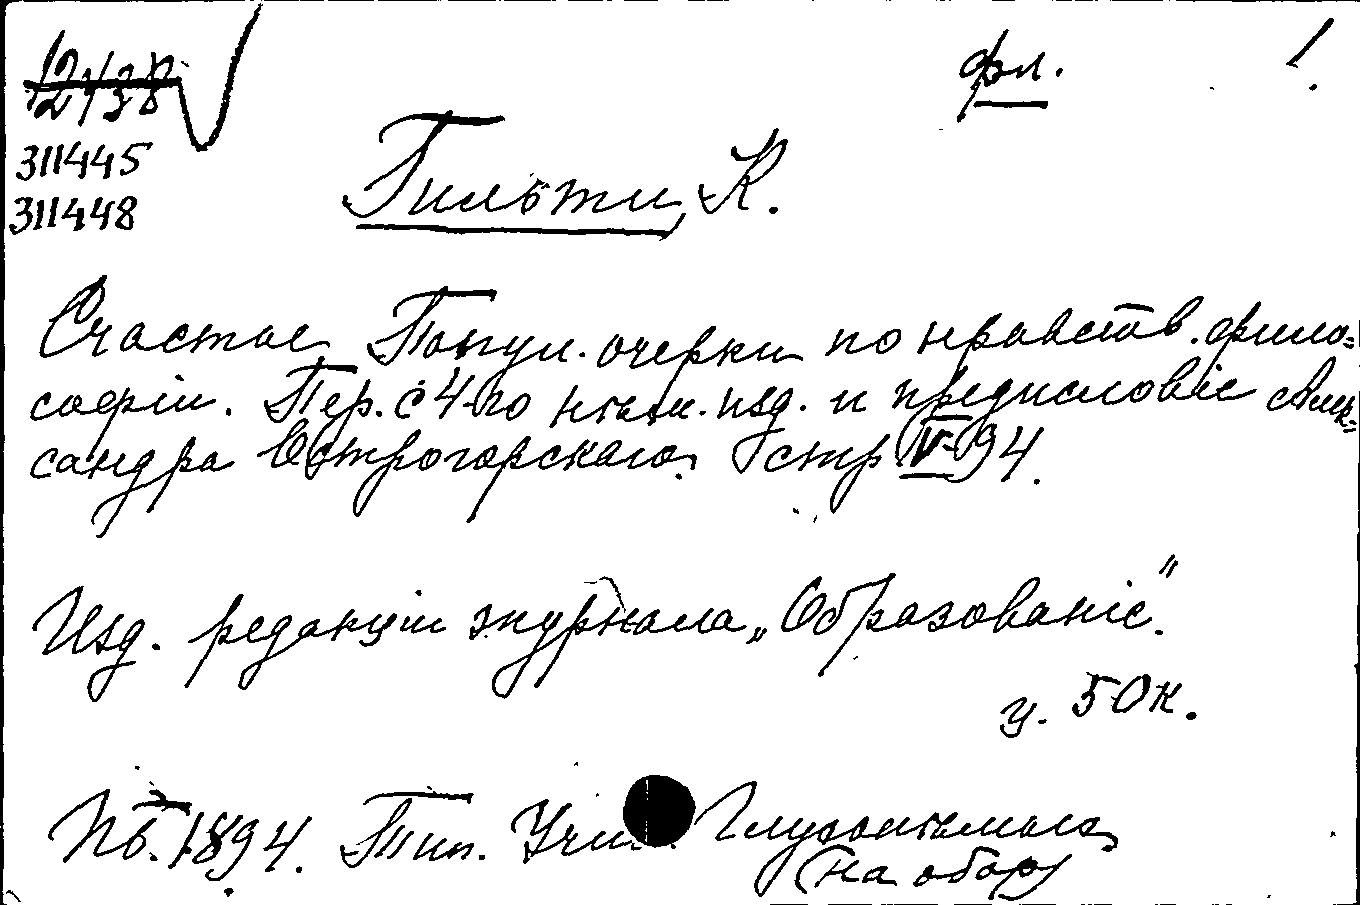 12738
фл. 1.
311445
311448
Гильти, К.
Счастье Попул. очерки по нравств. фило=
софіи. Пер. с 4-го нѣм. изд. и предисловіе Алек=
сандра Острогорскаго. стр V-94.
Изд. редакціи журнала „Образованіе".
ц. 50к.
Пб. 1894. Тип. Учил. Глухонѣмыхъ
(на обор)